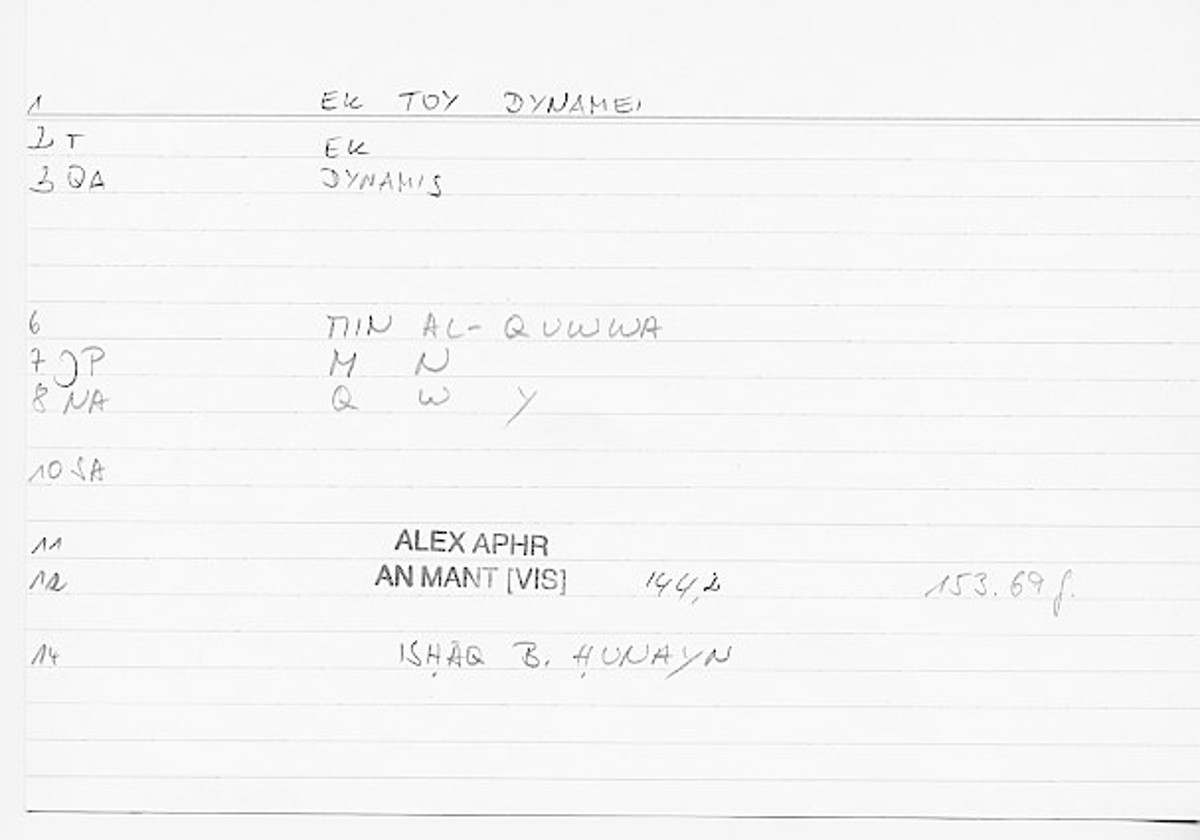 1 EK TOY DYNAMEI
2 T EK
3 QA DYNAMIS
6 MIN AL-QUWWA
7 JP M N
8 NA Q W Y
10 SA
11 ALEX APHR
12 AN MANT [VIS] 144,2 153.69 f.
14 ISḤĀQ B. ḤUNAYN